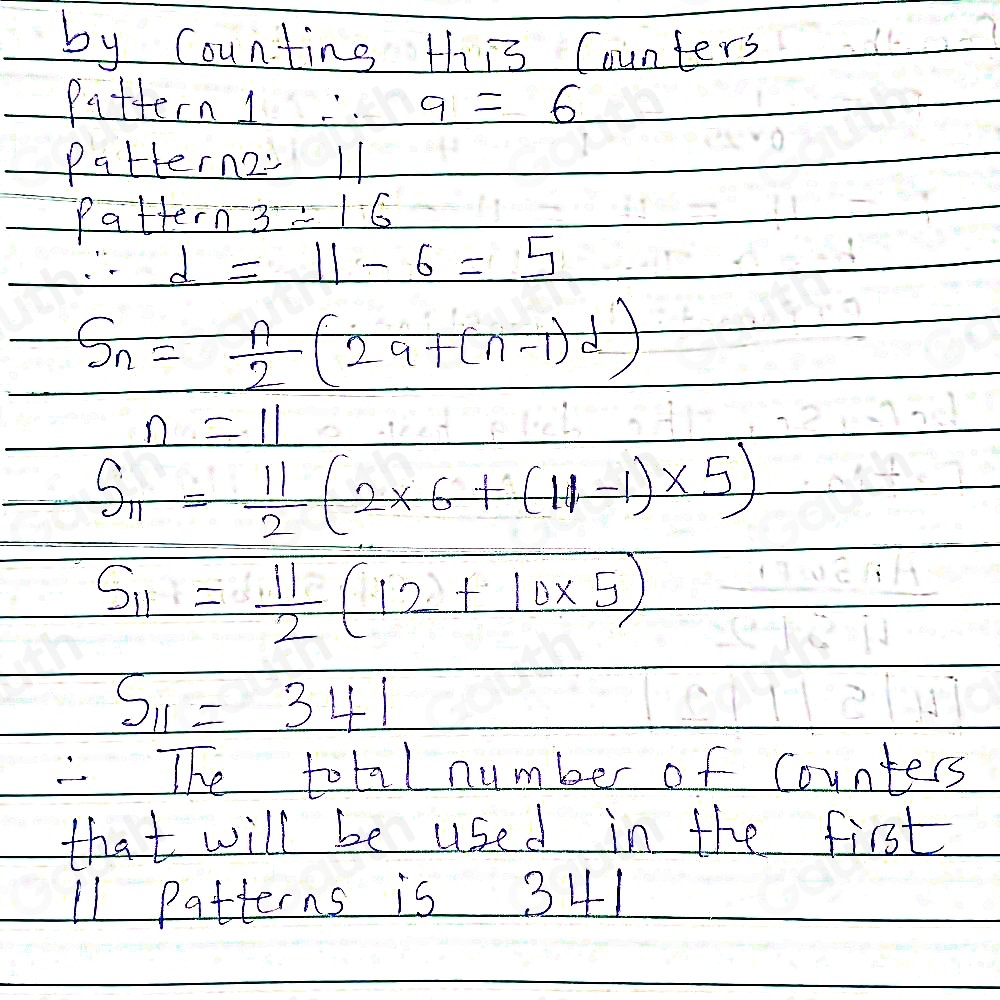 by Counting this Counters
Pattern 1 ∴ a = 6
Pattern 2 ∴ 11
Pattern 3 ∴ 16
∴ d = 11 - 6 = 5
Sn = n/2 (2a + (n-1)d)
n = 11
S11 = 11/2 (2×6 + (11-1)×5)
S11 = 11/2 (12 + 10×5)
S11 = 341
∴ The total number of Counters
that will be used in the first
11 Patterns is 341